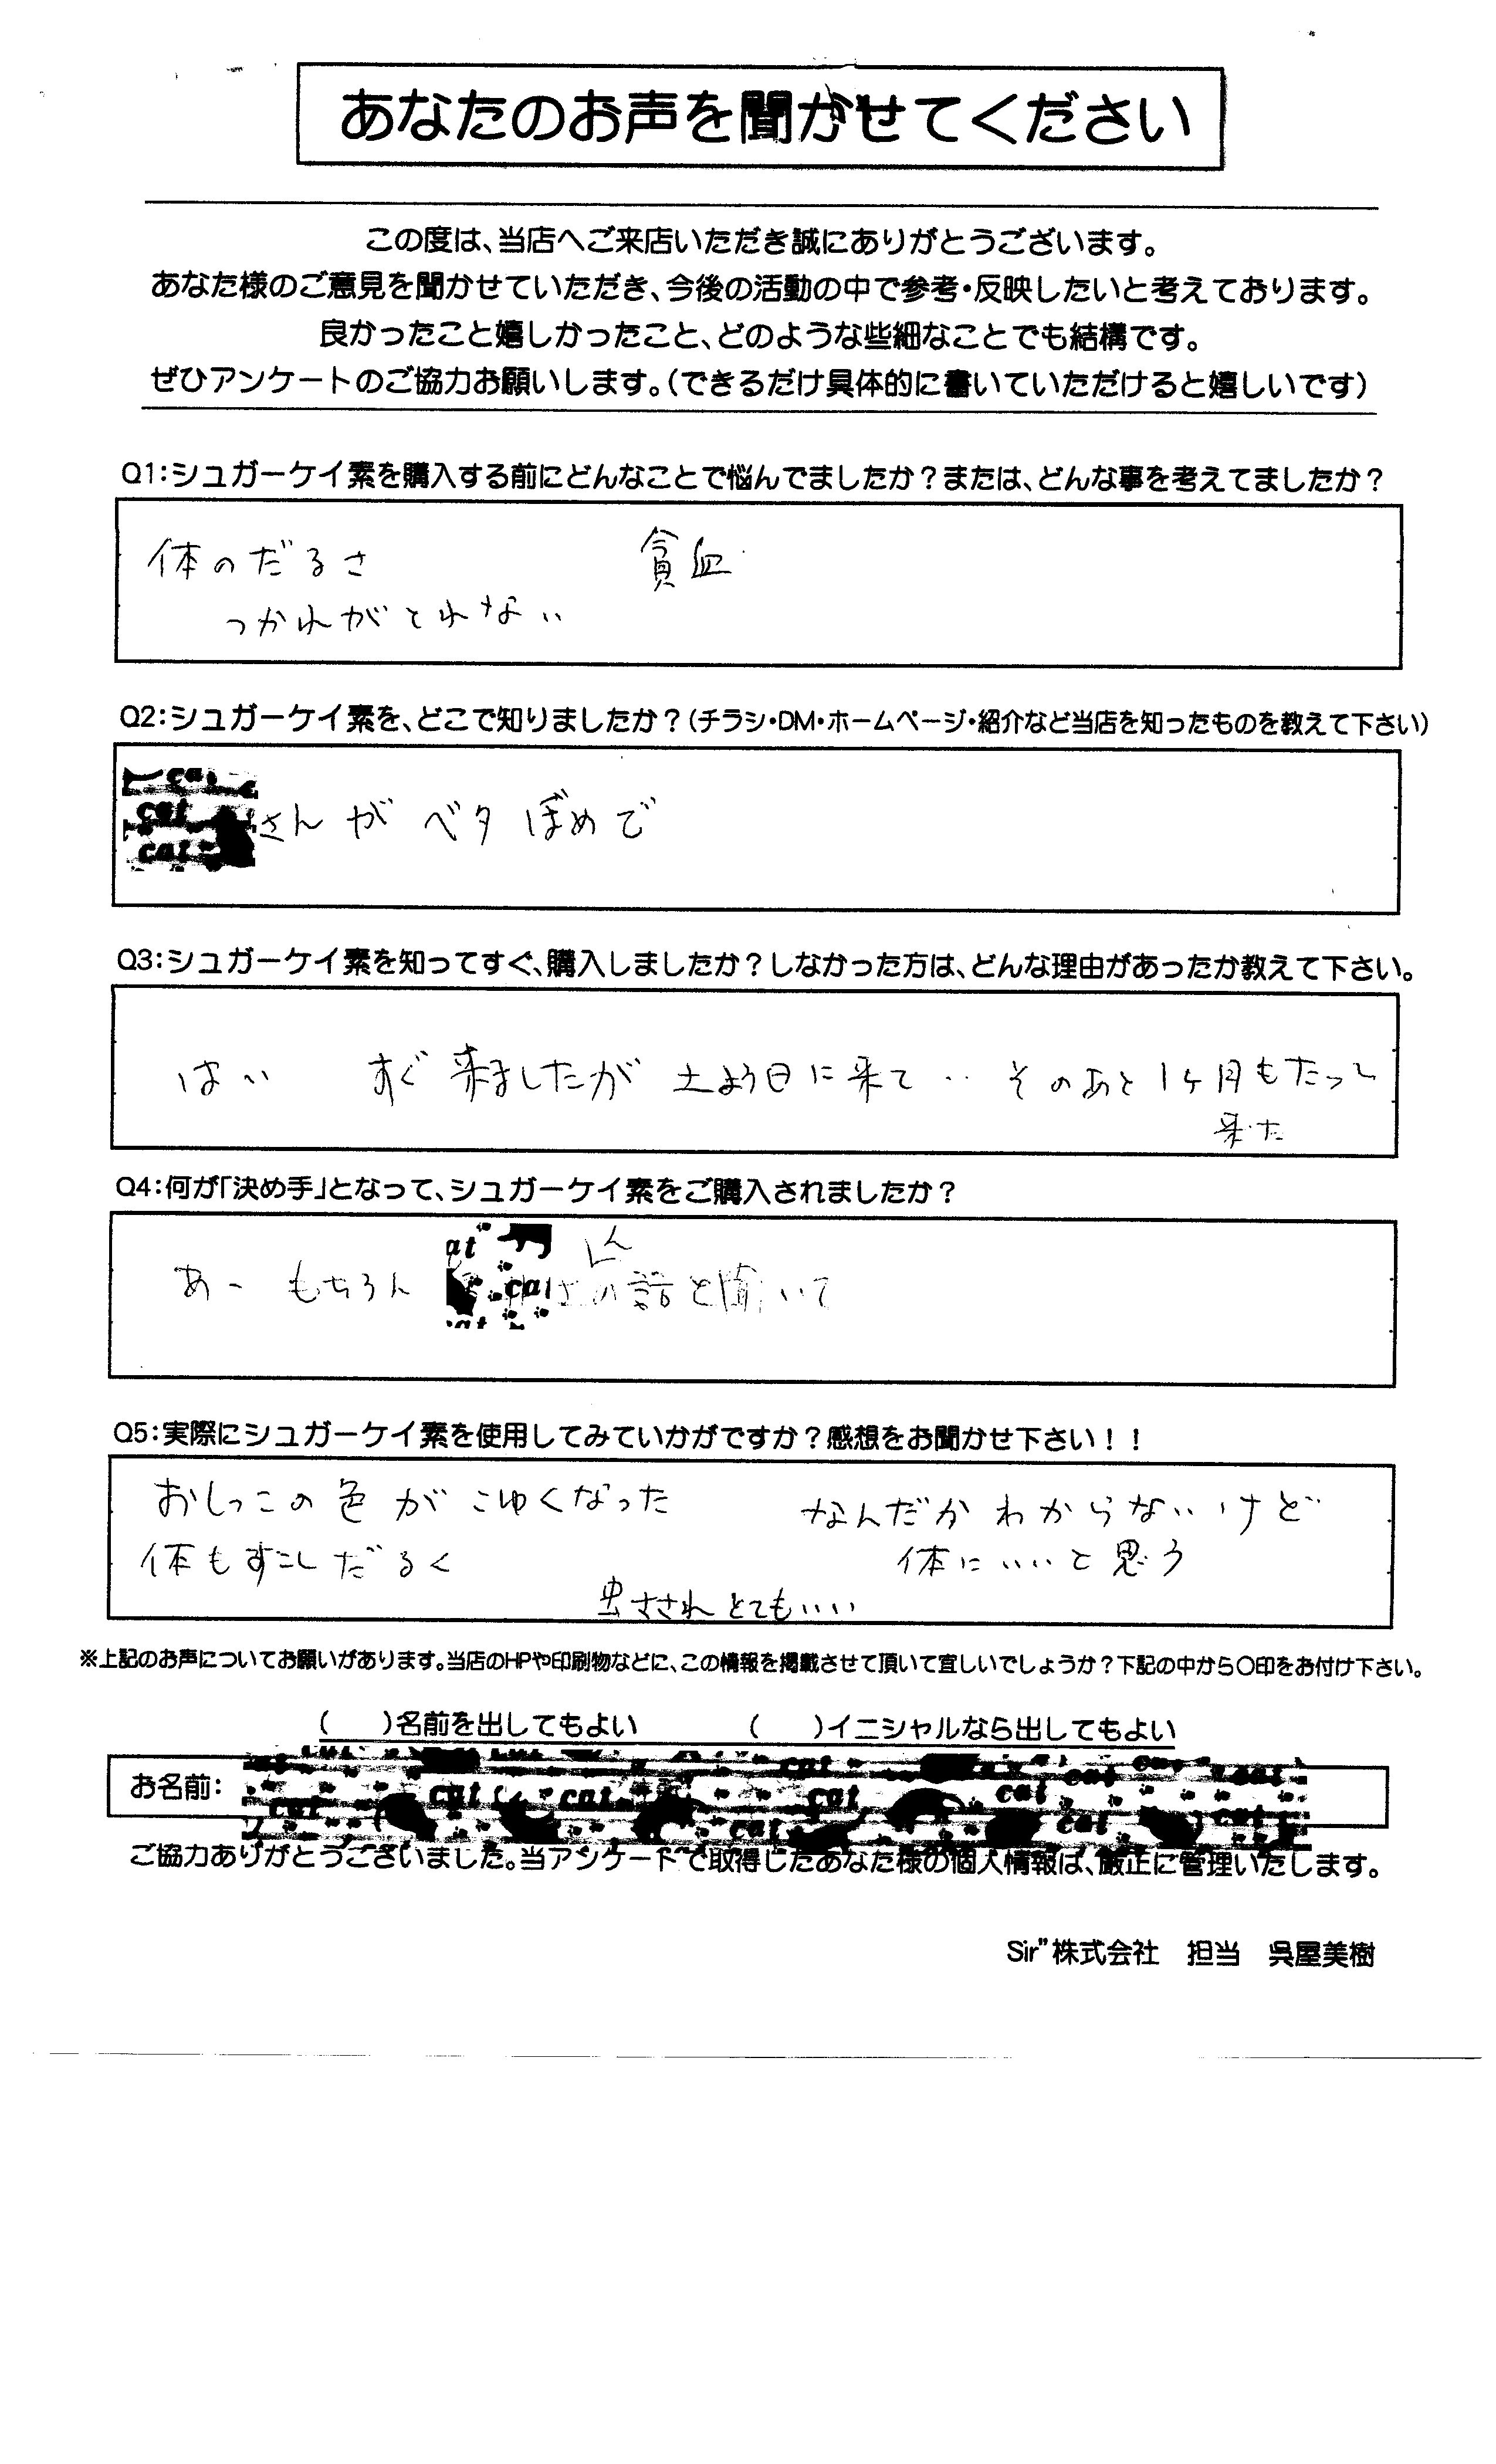 あなたのお声を聞かせてください
この度は、当店へご来店いただき誠にありがとうございます。
あなた様のご意見を聞かせていただき、今後の活動の中で参考・反映したいと考えております。
良かったこと嬉しかったこと、どのような些細なことでも結構です。
ぜひアンケートのご協力お願いします。(できるだけ具体的に書いていただけると嬉しいです)
Q1:シュガーケイ素を購入する前にどんなことで悩んでましたか?または、どんな事を考えてましたか?
体のだるさ 貧血
つかれがとれない
Q2:シュガーケイ素を、どこで知りましたか?(チラシ・DM・ホームページ・紹介など当店を知ったものを教えて下さい)
cat
cat
さんがベタぼめで
Q3:シュガーケイ素を知ってすぐ、購入しましたか?しなかった方は、どんな理由があったか教えて下さい。
はい すぐ来ましたが 土よう日に来て‥ そのあと1ヶ月もたって
来た
Q4:何が「決め手」となって、シュガーケイ素をご購入されましたか?
あー もちろん さんの話を聞いて
Q5:実際にシュガーケイ素を使用してみていかがですか?感想をお聞かせ下さい!!
おしっこの色がこゆくなった なんだかわからないけど
体もすこしだるく 体にいいと思う
虫さされとてもいい
※上記のお声についてお願いがあります。当店のHPや印刷物などに、この情報を掲載させて頂いて宜しいでしょうか?下記の中から○印をお付け下さい。
( )名前を出してもよい ( )イニシャルなら出してもよい
お名前: cat cat cat cat
ご協力ありがとうございました。当アンケートで取得したあなた様の個人情報は、厳正に管理いたします。
Sir”株式会社 担当 呉屋美樹